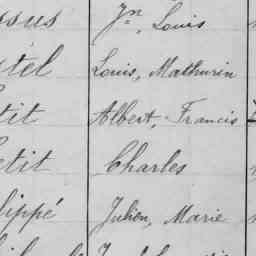 Jn, Louis
Louis, Mathurin
tit Albert, Francis
Petit Charles
lippé Julien, Marie